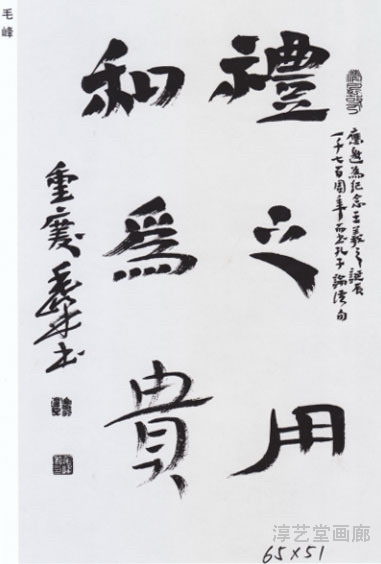 毛峰
禮之用
和為貴
應邀為紀念王羲之誕辰
一千七百周年而書孔子論語句
重慶毛峰书
淳艺堂画廊
65×51